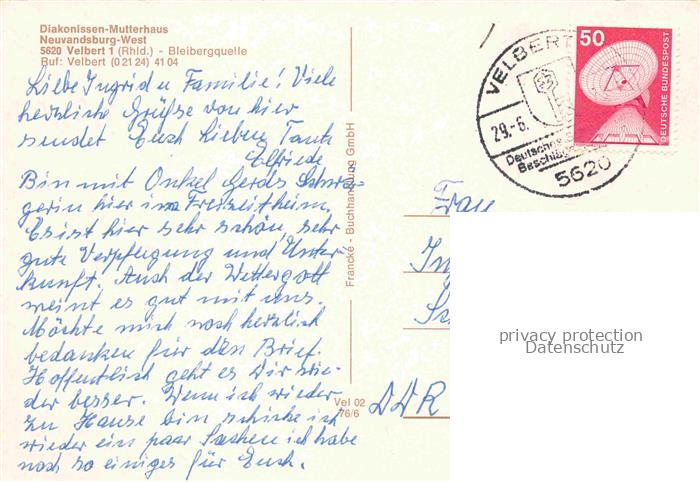 Diakonissen-Mutterhaus
Neuvandsburg-West
5620 Velbert 1 (Rhld.) - Bleibergquelle
Ruf: Velbert (0 21 24) 41 04
Liebe Ingrid u Familie! Viele
herzliche Grüße von hier
sendet Euch Lieben Tante
Elfriede
Bin mit Onkel Gerds Schwä-
gerin hier im Freizeitheim.
Es ist hier sehr schön, sehr
gute Verpflegung und Unter-
kunft. Auch der Wettergott
meint es gut mit uns.
Möchte mich noch herzlich
bedanken für den Brief.
Hoffentlich geht es Dir wie-
der besser. Wenn ich wieder
zu Hause bin schicke ich
wieder ein paar Sachen ich habe
noch so einiges für Euch.
Francke - Buchhandlung GmbH
Vel 02
76/6
VELBERT
29.-6.
Deutsches
5620
50
DEUTSCHE BUNDESPOST
Frau
In
DDR
privacy protection
Datenschutz